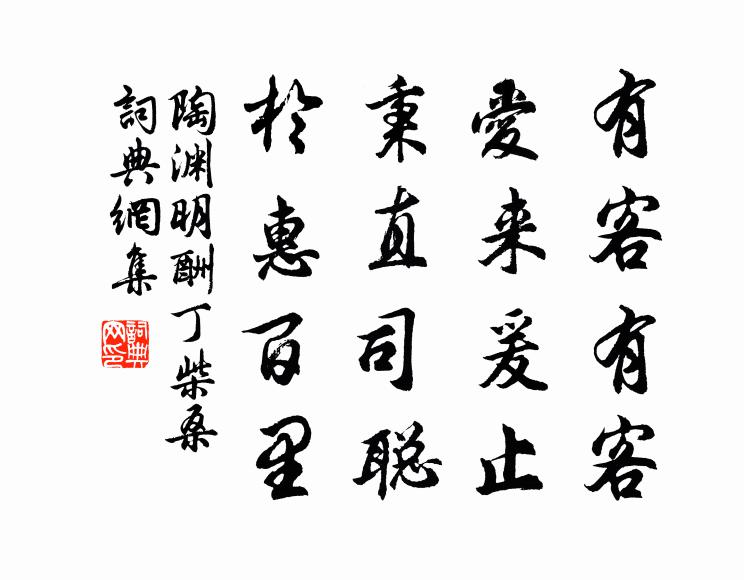 有客有客
愛来爰止
秉直司聪
於惠百里
陶渊明酬丁柴桑
詞典網集
詞典网印